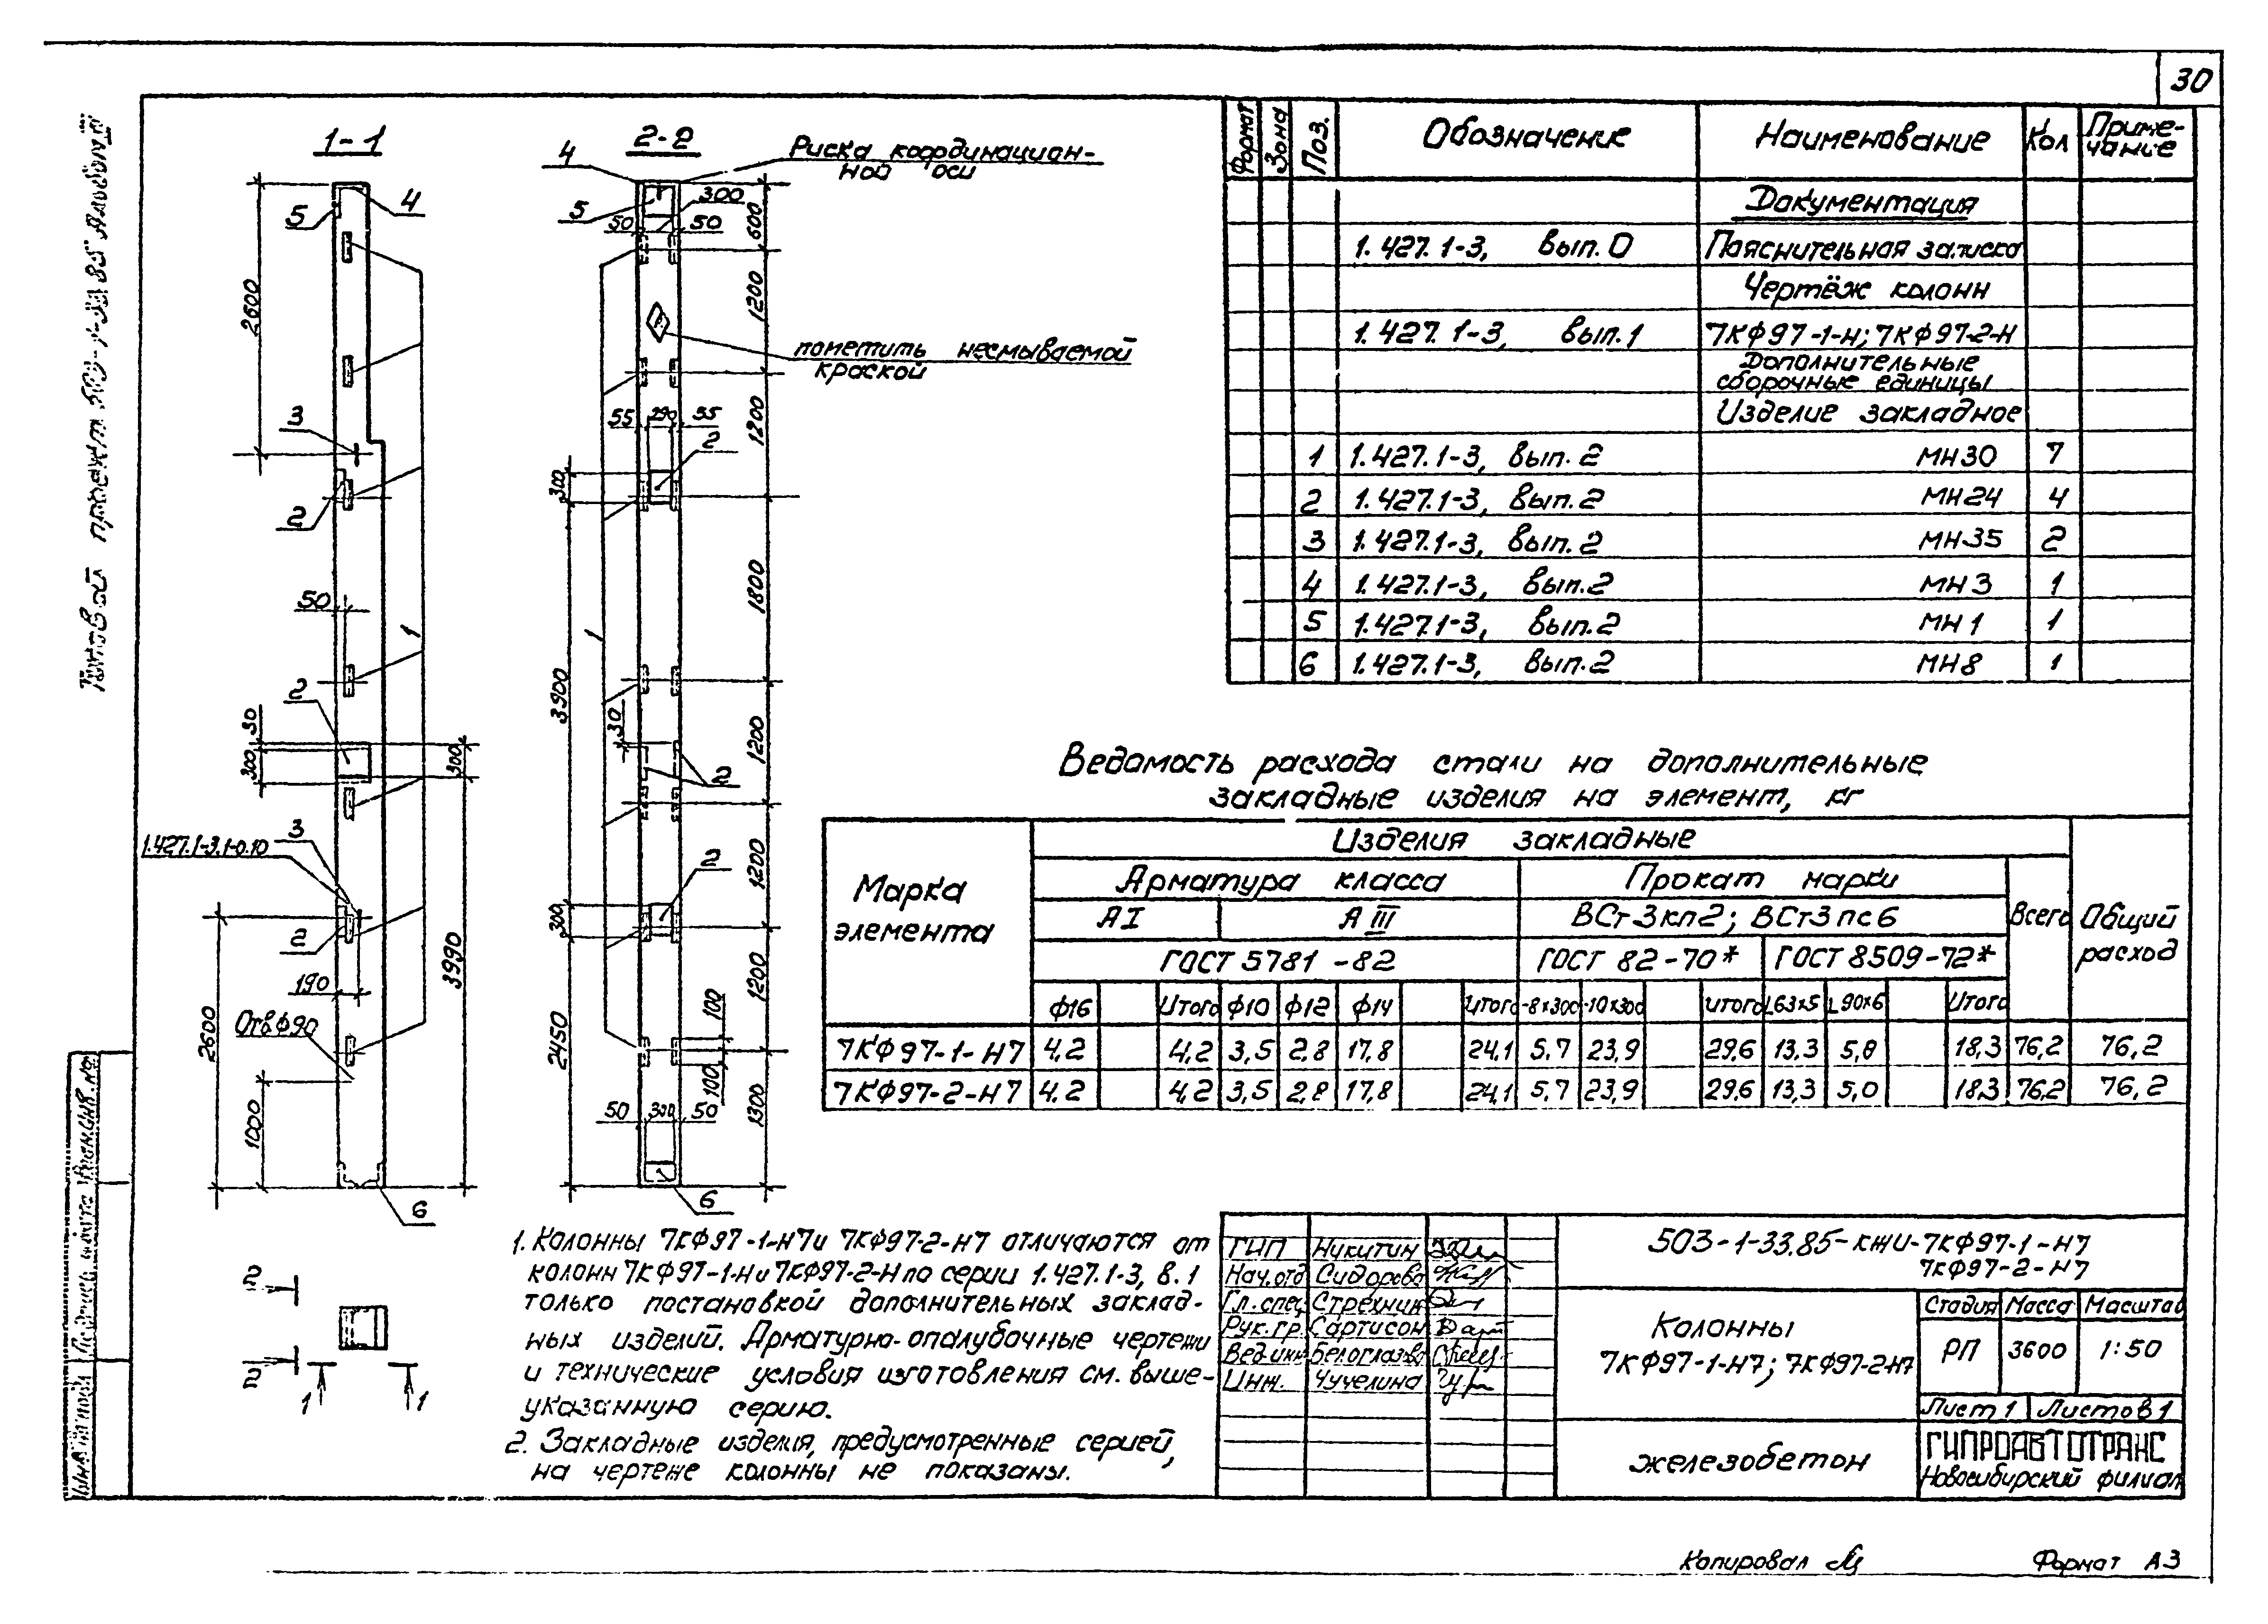 30
Типовой проект 503-1-33.85 Альбом
1-1
2-2
Риска координацион-
ной оси
4
5
4
5
300
50
50
600
2600
1200
пометить несмываемой
краской
3
55
290
55
1200
2
2
300
50
1
1
1800
2
3900
30
30
300
300
1200
2
1.427.1-3.1-0.10
3
2
1200
300
2
190
3990
Отв.ф90
2600
2450
1200
100
100
1000
50
300
50
1300
6
6
2
2
1
1
Формат
Зона
Поз.
Обозначение
Наименование
Кол
Приме-
чание
Документация
1.427.1-3, вып.0 Пояснительная записка
Чертёж колонн
1.427.1-3, вып.1 7КФ97-1-Н; 7КФ97-2-Н
Дополнительные
сборочные единицы
Изделие закладное
1 1.427.1-3, вып.2 МН30 7
2 1.427.1-3, вып.2 МН24 4
3 1.427.1-3, вып.2 МН35 2
4 1.427.1-3, вып.2 МН3 1
5 1.427.1-3, вып.2 МН1 1
6 1.427.1-3, вып.2 МН8 1
Ведомость расхода стали на дополнительные
закладные изделия на элемент, кг
Марка
элемента
Изделия закладные
Арматура класса
Прокат марки
АI
АIII
ВСт3кп2; ВСт3пс6
Всего
Общий
расход
ГОСТ 5781-82
ГОСТ 82-70*
ГОСТ 8509-72*
ф16 Итого ф10 ф12 ф14 Итого -8х300 -10х300 Итого L63х5 L90х6 Итого
7КФ97-1-Н7 4,2 4,2 3,5 2,8 17,8 24,1 5,7 23,9 29,6 13,3 5,0 18,3 76,2 76,2
7КФ97-2-Н7 4,2 4,2 3,5 2,8 17,8 24,1 5,7 23,9 29,6 13,3 5,0 18,3 76,2 76,2
1. Колонны 7КФ97-1-Н7 и 7КФ97-2-Н7 отличаются от
колонн 7КФ97-1-Н и 7КФ97-2-Н по серии 1.427.1-3, в.1
только постановкой дополнительных заклад-
ных изделий. Арматурно-опалубочные чертежи
и технические условия изготовления см. выше-
указанную серию.
2. Закладные изделия, предусмотренные серией,
на чертеже колонны не показаны.
ГИП Никитин
Нач.отд Сидорова
Гл.спец Стрехнин
Рук.гр. Сартисон
Вед.инж Белоглазова
Инж. Чучелина
503-1-33.85-КЖИ-7КФ97-1-Н7
7КФ97-2-Н7
Колонны
7КФ97-1-Н7; 7КФ97-2-Н7
Стадия Масса Масштаб
РП 3600 1:50
Лист 1 Листов 1
железобетон
ГИПРОАВТОТРАНС
Новосибирский филиал
Инв.№ подл Подпись и дата Взам.инв.№
Копировал
Формат А3